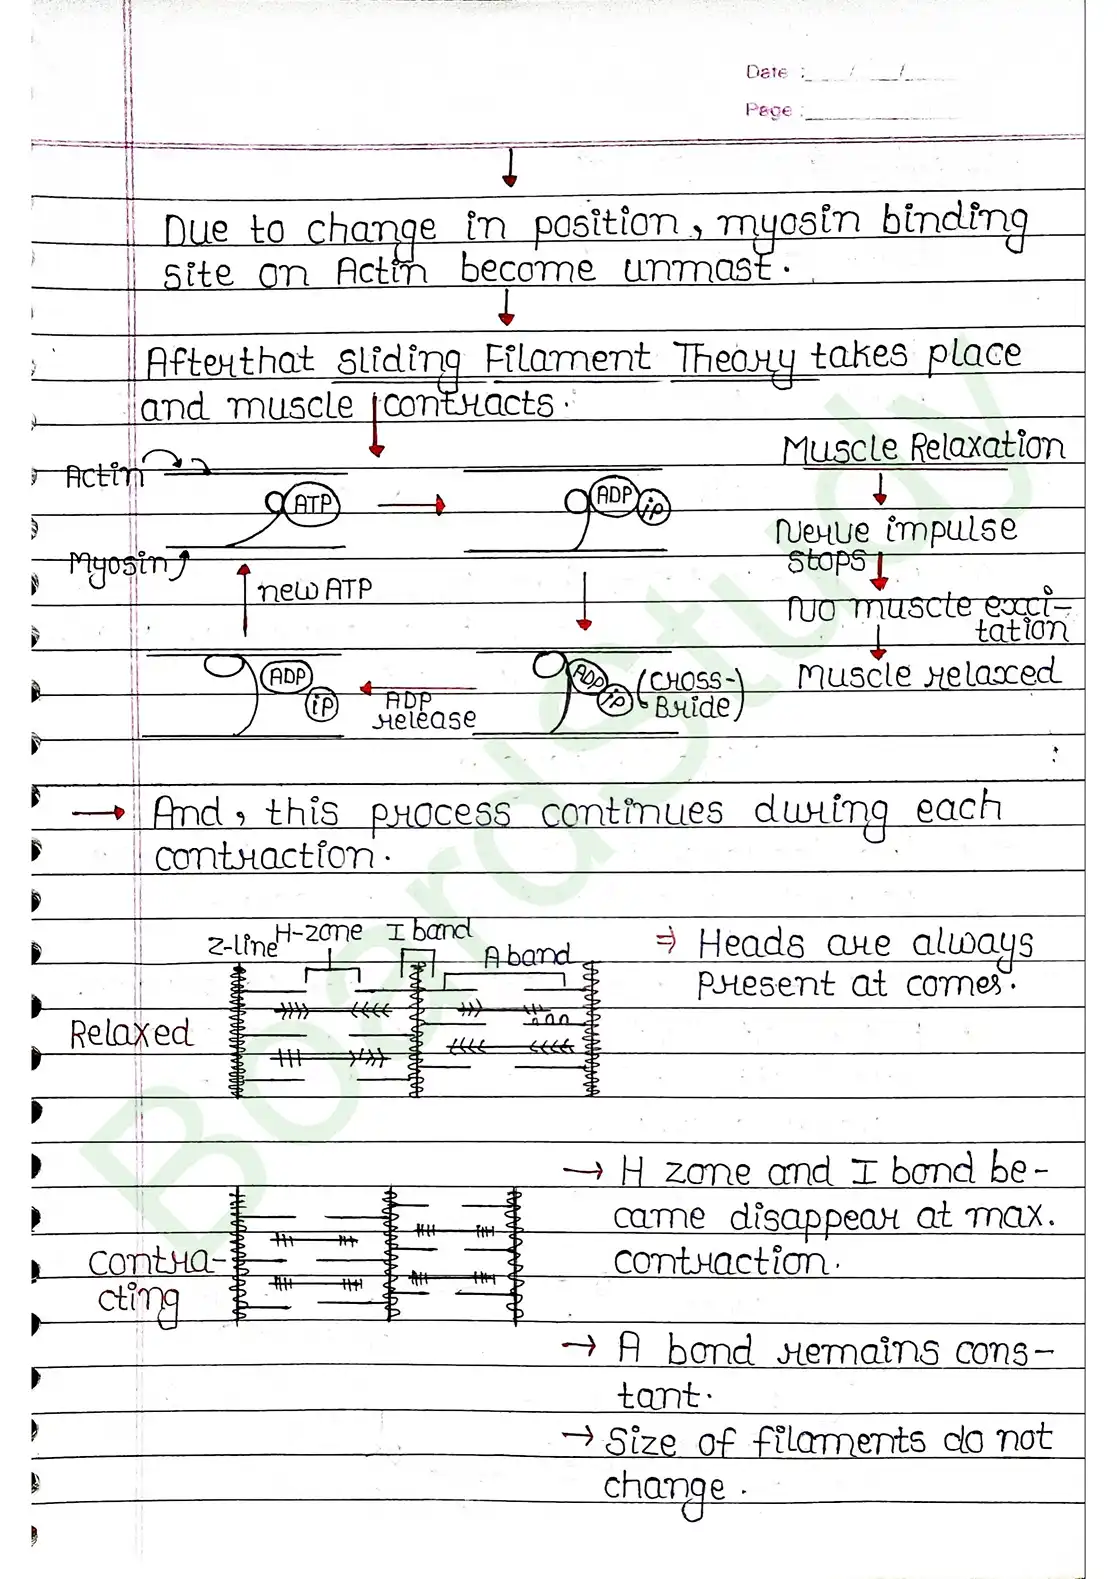 Date :
Page :
Due to change in position, myosin binding
site on Actin become unmast.
Afterthat sliding Filament Theory takes place
and muscle contracts.
Actin
ATP
Myosin
new ATP
ADP
ip
ADP
ip
(cross-
Bride)
ADP
release
ADP
ip
Muscle Relaxation
Nerve impulse
stops
No muscle exci-
tation
Muscle relaxed
→ And, this process continues during each
contraction.
Z-line
H-zone
I band
A band
Relaxed
⇒ Heads are always
present at comes.
Contra-
cting
→ H zone and I bond be-
came disappear at max.
contraction.
→ A bond remains cons-
tant.
→ Size of filaments do not
change.
BoardStudy